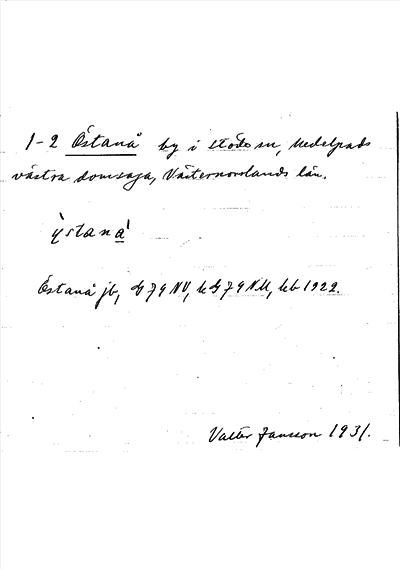 1-2 Östanå by i Stöde sn, Medelpads
västra domsaga, Västernorrlands län.
ỳstana̲̍
Östanå jb, G 79 NV, kG 79 NU, kb 1922.
Valter Jansson 1931.